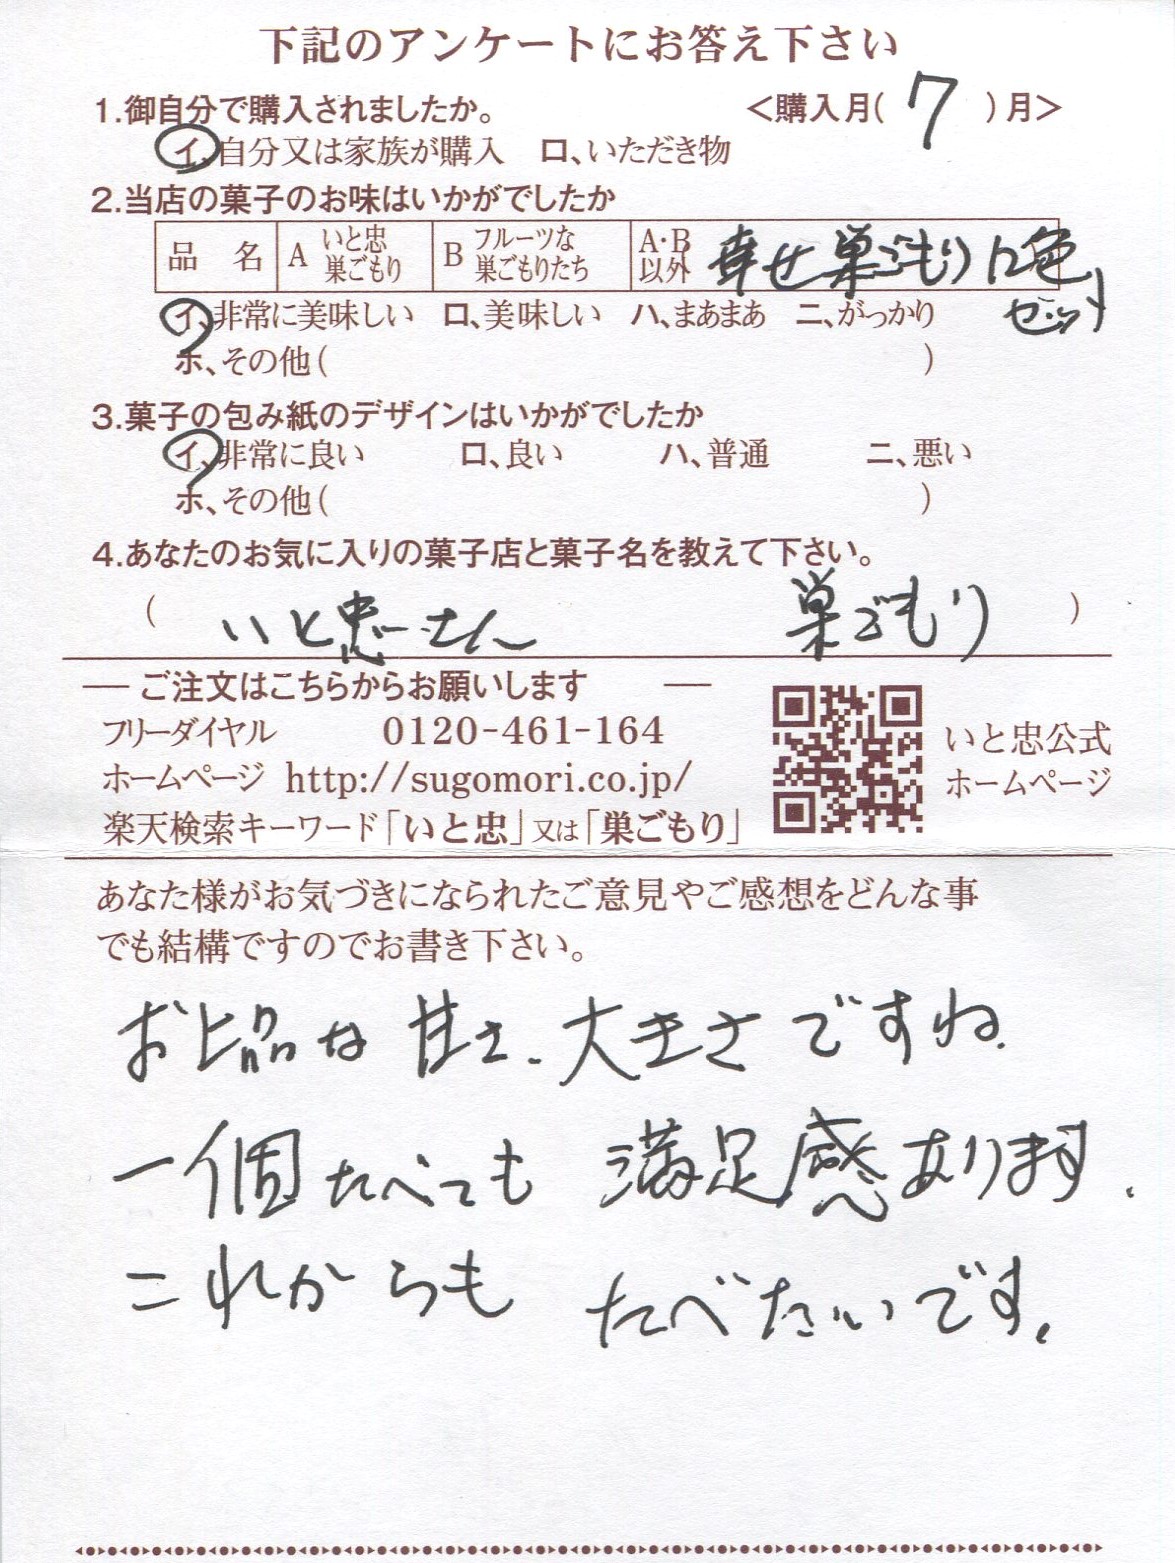 下記のアンケートにお答え下さい
1.御自分で購入されましたか。 <購入月( 7 )月>
イ、自分又は家族が購入 ロ、いただき物
2.当店の菓子のお味はいかがでしたか
品 名 A いと忠 巣ごもり B フルーツな 巣ごもりたち A・B 以外 幸せ巣ごもり12色
セット
イ、非常に美味しい ロ、美味しい ハ、まあまあ ニ、がっかり
ホ、その他( )
3.菓子の包み紙のデザインはいかがでしたか
イ、非常に良い ロ、良い ハ、普通 ニ、悪い
ホ、その他( )
4.あなたのお気に入りの菓子店と菓子名を教えて下さい。
( いと忠さん 巣ごもり )
― ご注文はこちらからお願いします ―
フリーダイヤル 0120-461-164
ホームページ http://sugomori.co.jp/
楽天検索キーワード「いと忠」又は「巣ごもり」
いと忠公式
ホームページ
あなた様がお気づきになられたご意見やご感想をどんな事
でも結構ですのでお書き下さい。
お上品な甘さ、大きさですね.
一個たべても 満足感あります.
これからも たべたいです.